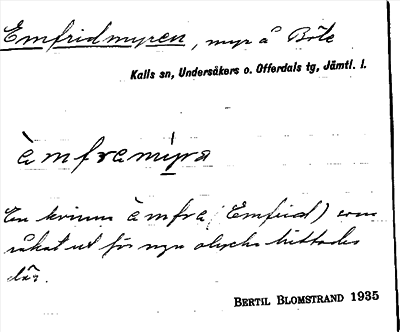 Emfridmyren, myr å Böle
Kalls sn, Undersåkers o. Offerdals tg, Jämtl. l.
àmframy̍ra
En kvinna àmfra (Emfrid) som
råkat ut för ngn olycka hittades
där.
BERTIL BLOMSTRAND 1935